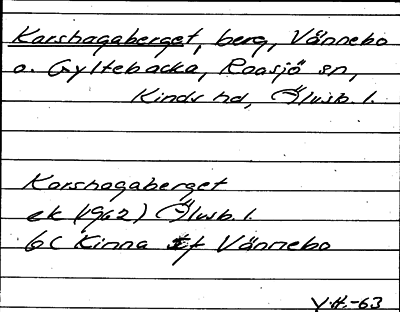 Korshagaberget, berg, Vännebo
o. Gyltebacka, Roasjö sn,
Kinds hd, Älvsb. l.
Korshagaberget
ek (1962) Älvsb. l.
6C Kinna tf Vännebo
V.H.-63